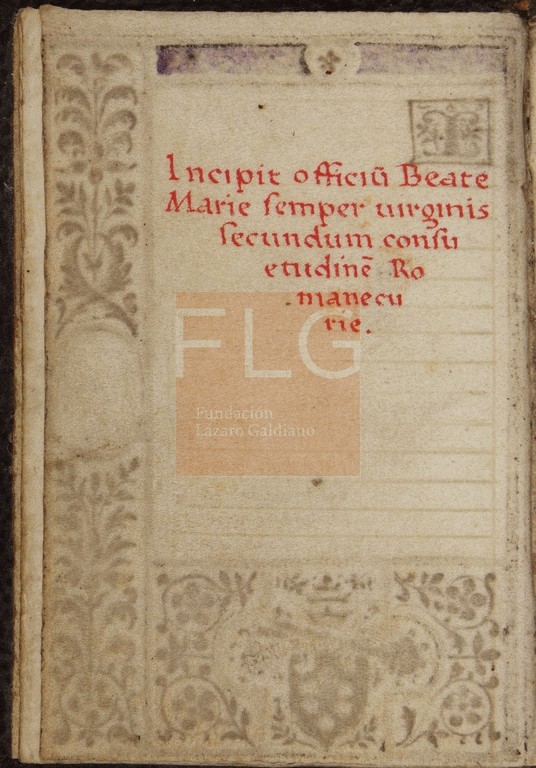 Incipit officiū Beate
Marie semper uirginis
secundum consu
etudinē Ro
manecu
rie.
FLG
Fundación
Lázaro Galdiano